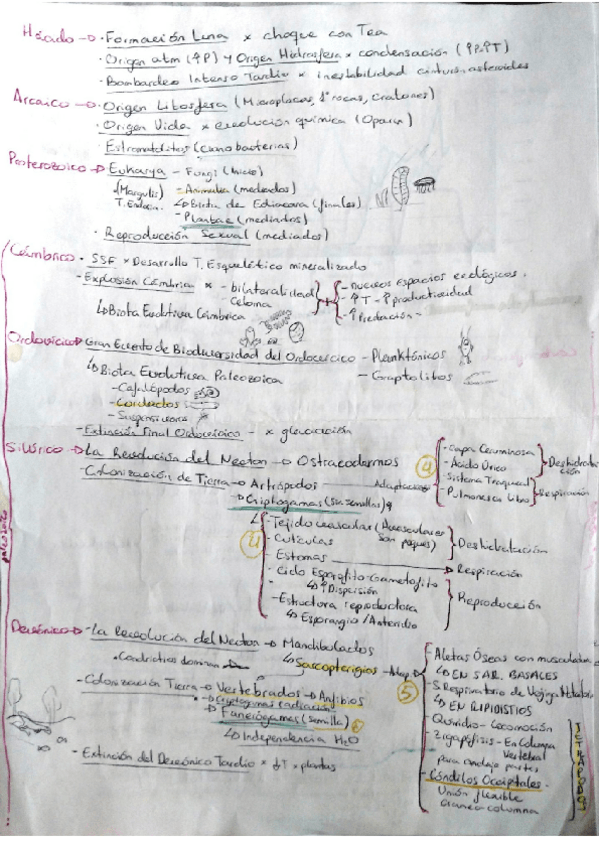 Héado → · Formación Luna × choque con Tea
· Origen atm (↑P) y Origen Hidrosfera × condensación (↑P↓T)
· Bombardeo Intenso Tardío × inestabilidad cinturón asteroides
Arcaico → · Origen Litosfera (Microplacas, 1ª rocas, cratones)
· Origen Vida × evolución química (Oparin)
· Estromatolitos (cianobacterias)
Proterozoico → Eukarya - Fungi (inicio)
· (Margulis) - Animalia (mediados)
T. Endosim. ↳ Biota de Ediacara (finales)
- Plantae (mediados)
· Reproducción Sexual (mediados)
Cámbrico · SSF × Desarrollo T. Esquelético mineralizado
- Explosión Cámbrica × - bilateralidad + - nuevos espacios ecológicos.
- Celoma - ↑T - ↑productividad
↳ Biota Evolutiva Cámbrica - ↑Predación -
Ordovícico → Gran Evento de Biodiversidad del Ordovícico - Planktónicos
↳ Biota Evolutiva Paleozoica - Graptolitos
- Cefalópodos
- Conodectos
- Suspensívoros
- Extinción Final Ordovícico - × glaciación
Silúrico → La Revolución del Necton → Ostracodermos
- Colonización de Tierra → Artrópodos - Adaptaciones
④ - Capa Ceruminosa
- Ácido Úrico
Deshidratación
- Sistema Traqueal
- Pulmones en Libro
Respiración
→ Criptogamas (sin semillas)
④ - Tejido vascular (Avasculares son peques)
- Cutículas
Deshidratación
- Estomas → Respiración
- Ciclo Esporofito-Gametofito
↳ ↑Dispersión
- Estructura reproductora
↳ Esporangio / Anteridio
Reproducción
paleozoico
Devónico → - La Revolución del Necton → Mandibulados
· Condrictios dominan
↳ Sarcopterigios - Adap
⑤ - Aletas Óseas con musculatura
↳ EN SAR. BASALES
- S. Respiratorio de Vejiga Natatoria
↳ EN RIPIDISTIOS
- Quiridio - Locomoción
- Zigapófisis - En Columna Vertebral
- Cóndilos Occipitales.
Unión flexible
Cráneo columna
TETRÁPODOS
- Colonización Tierra → Vertebrados → Anfibios
→ Criptogamas radiación
→ Fanerógamas (semilla)
↳ Independencia H₂O
- Extinción del Devónico Tardío × ↓T × plantas